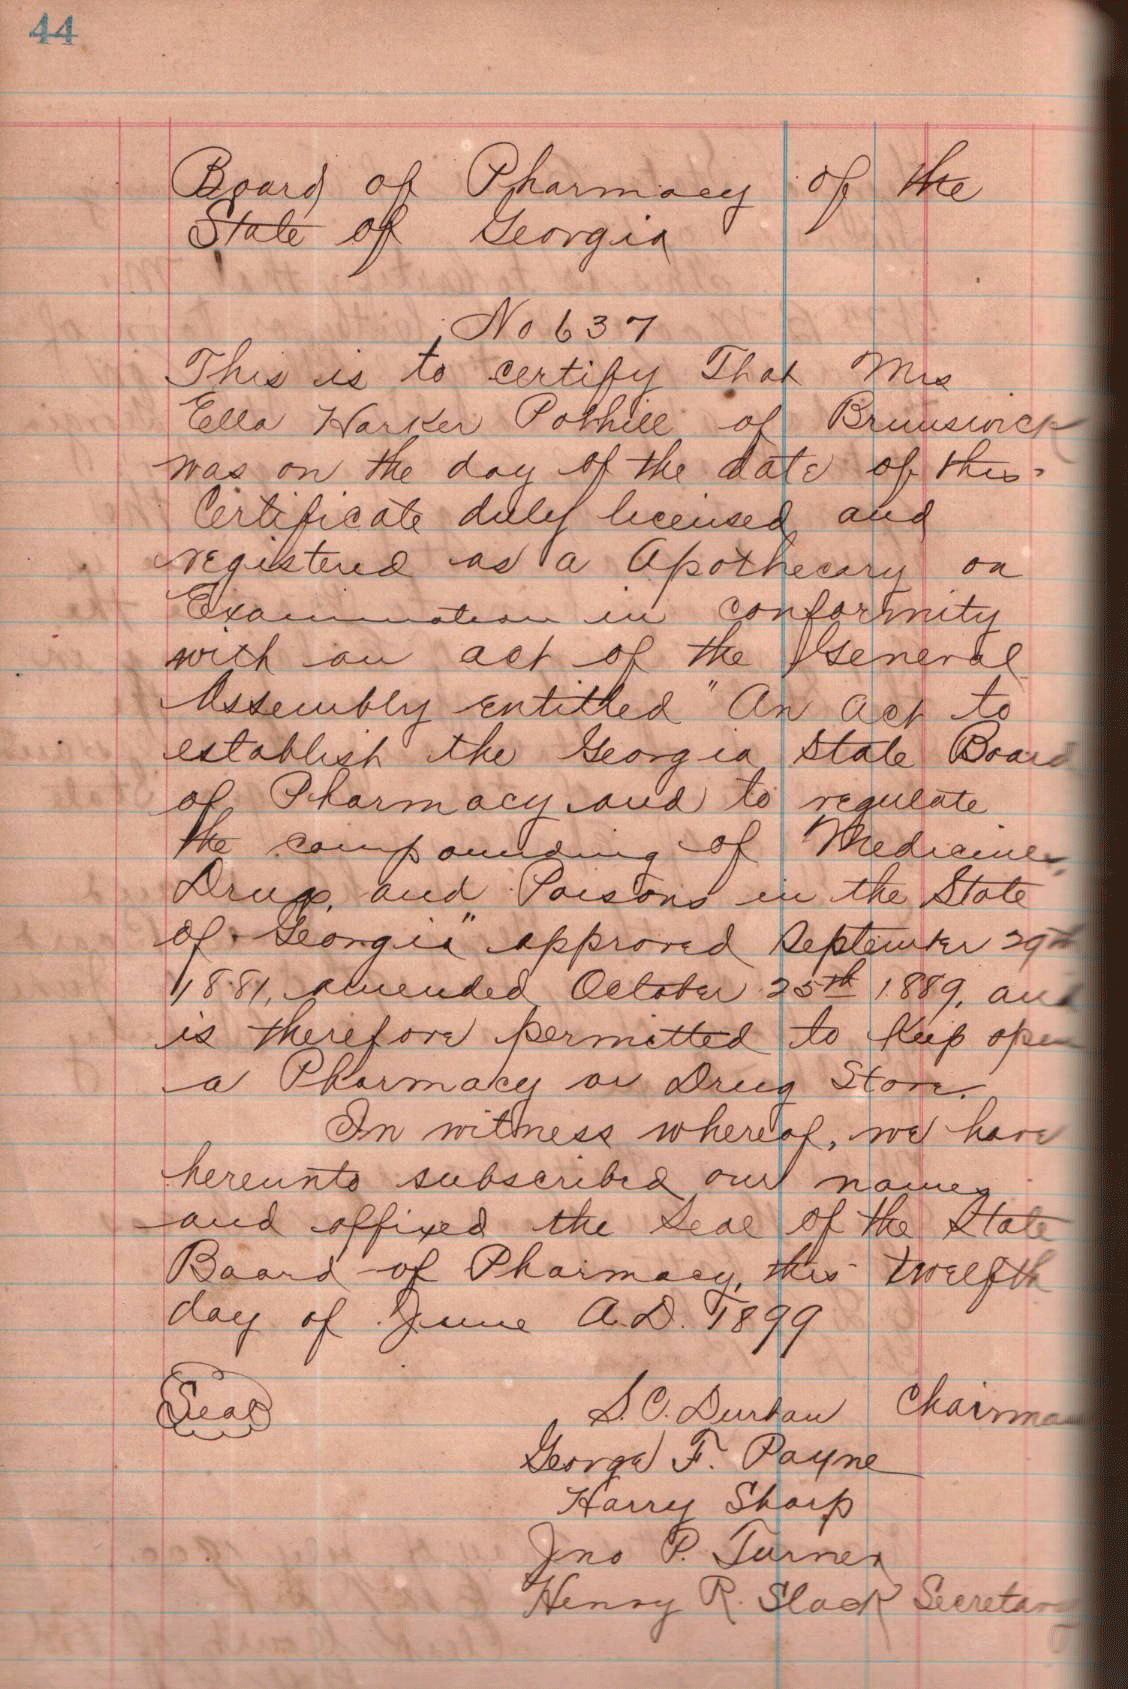 44
Board of Pharmacy of the
State of Georgia
No 637
This is to certify That Mrs
Ella Harker Pothill of Brunswick
was on the day of the date of this
Certificate duly licensed and
registered as a Apothecary on
Examination in conformity
with an act of the General
Assembly entitled "An Act to
establish the Georgia State Board
of Pharmacy and to regulate
the compounding of Medicines,
Drugs, and Poisons in the State
of Georgia" approved September 29th
1881, amended October 25th 1889, and
is therefore permitted to Keep open
a Pharmacy or Drug Store.
In witness whereof, we have
hereunto subscribed our names
and affixed the Seal of the State
Board of Pharmacy, this twelfth
day of June A.D. 1899
Seal
S. C. Durban Chairman
George F. Payne
Harry Sharp
Jno P. Turner
Henry R. Slack Secretary